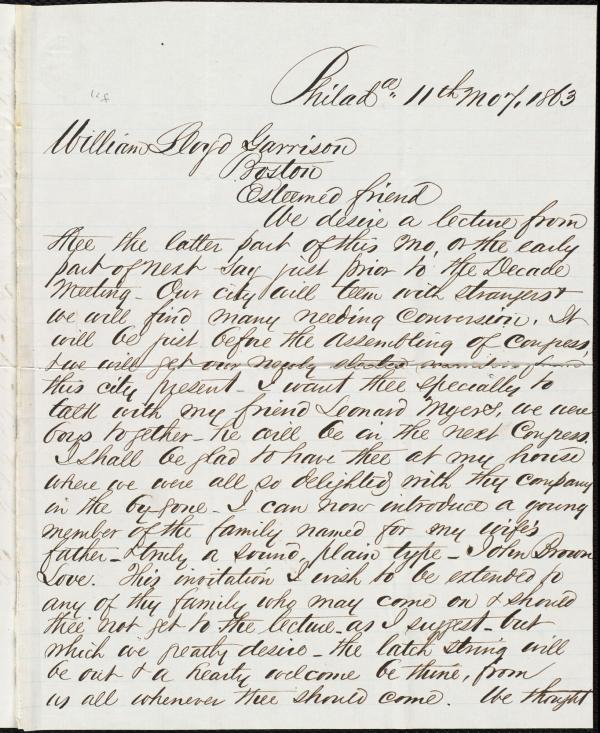 Philada. 11th Mo 7, 1863
William Lloyd Garrison
Boston
Esteemed friend
We desire a lecture from
thee the latter part of this Mo, or the early
part of next say just prior to the Decade
Meeting - Our city will teem with strangers &
we will find many needing conversion. It
will be just before the assembling of Congress,
& we will get our newly elected members from
this city present - I want thee specially to
talk with my friend Leonard Myers, we were
boys together - he will be in the next Congress.
I shall be glad to have thee at my house
where we were all so delighted with thy company
in the by gone - I can now introduce a young
member of the family named for my wife's
father - truly a sound, plain type - John Brown
Love. This invitation I wish to be extended to
any of thy family who may come on & should
thee not get to the lecture - as I suggest - but
which we greatly desire - the latch string will
be out & a hearty welcome be thine, from
us all whenever thee should come. We thought